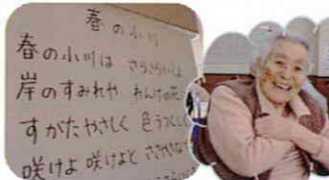 春の小川
春の小川は さらさらいくよ
岸のすみれや れんげの花
すがたやさしく 色うつくし
咲けよ 咲けよと ささやき